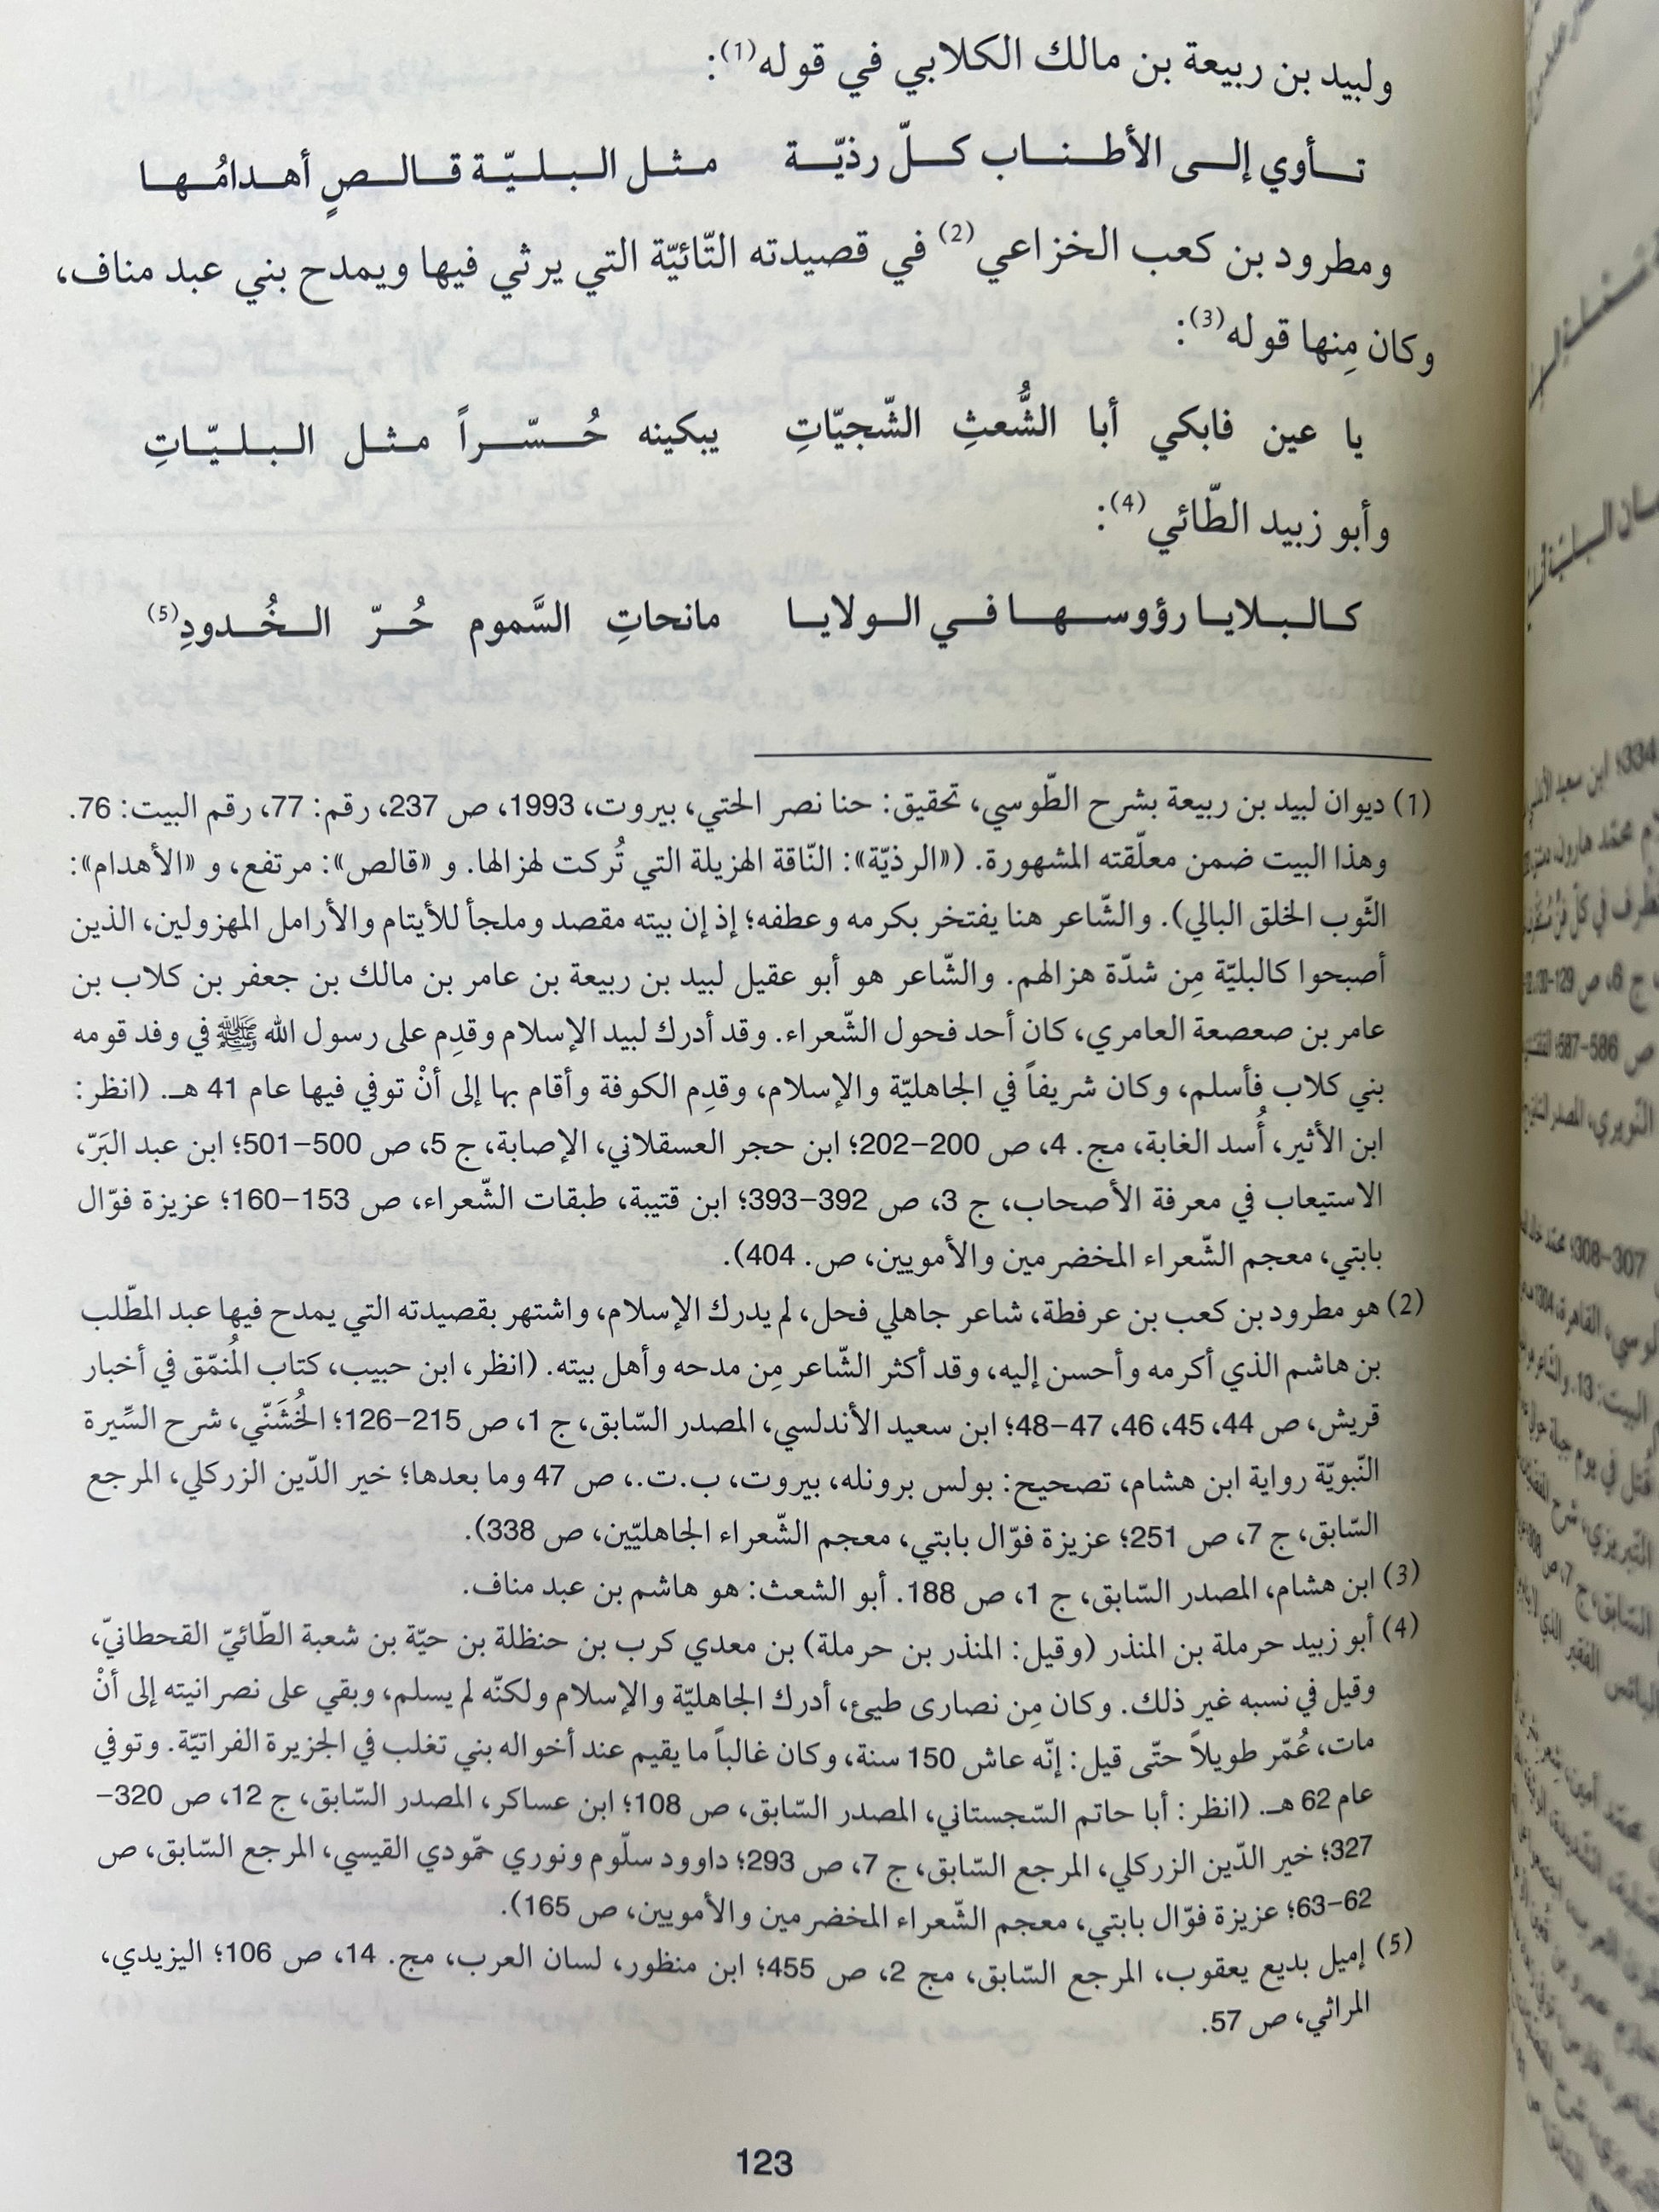 ولبيد بن ربيعة بن مالك الكلابي في قوله(1):
تأوي إلى الأطناب كلّ رذيّة مثل البليّة قالصٍ أهدامُها
ومطرود بن كعب الخزاعي(2) في قصيدته التّائيّة التي يرثي فيها ويمدح بني عبد مناف،
وكان مِنها قوله(3):
يا عين فابكي أبا الشُّعثِ الشّجيّاتِ يبكينه حُسّراً مثل البليّاتِ
وأبو زبيد الطّائي(4):
كالبلايا رؤوسها في الولايا مانحاتِ السَّموم حُرّ الخُدودِ(5)
(1) ديوان لبيد بن ربيعة بشرح الطّوسي، تحقيق: حنا نصر الحتي، بيروت، 1993، ص 237، رقم: 77، رقم البيت: 76.
وهذا البيت ضمن معلّقته المشهورة. («الرذيّة»: النّاقة الهزيلة التي تُركت لهزالها. و «قالص»: مرتفع، و «الأهدام»:
الثّوب الخلق البالي). والشّاعر هنا يفتخر بكرمه وعطفه؛ إذ إن بيته مقصد وملجأ للأيتام والأرامل المهزولين، الذين
أصبحوا كالبليّة مِن شدّة هزالهم. والشّاعر هو أبو عقيل لبيد بن ربيعة بن عامر بن مالك بن جعفر بن كلاب بن
عامر بن صعصعة العامري، كان أحد فحول الشّعراء. وقد أدرك لبيد الإسلام وقدِم على رسول الله ﷺ في وفد قومه
بني كلاب فأسلم، وكان شريفاً في الجاهليّة والإسلام، وقدِم الكوفة وأقام بها إلى أنْ توفي فيها عام 41 هـ. (انظر:
ابن الأثير، أُسد الغابة، مج. 4، ص 200–202؛ ابن حجر العسقلاني، الإصابة، ج 5، ص 500–501؛ ابن عبد البَرّ،
الاستيعاب في معرفة الأصحاب، ج 3، ص 392–393؛ ابن قتيبة، طبقات الشّعراء، ص 153–160؛ عزيزة فوّال
بابتي، معجم الشّعراء المخضرمين والأمويين، ص. 404).
(2) هو مطرود بن كعب بن عرفطة، شاعر جاهلي فحل، لم يدرك الإسلام، واشتهر بقصيدته التي يمدح فيها عبد المطّلب
بن هاشم الذي أكرمه وأحسن إليه، وقد أكثر الشّاعر مِن مدحه وأهل بيته. (انظر، ابن حبيب، كتاب المُنمّق في أخبار
قريش، ص 44، 45، 46، 47–48؛ ابن سعيد الأندلسي، المصدر السّابق، ج 1، ص 215–126؛ الخُشَنّي، شرح السِّيرة
النّبويّة رواية ابن هشام، تصحيح: بولس برونله، بيروت، ب.ت.، ص 47 وما بعدها؛ خير الدّين الزركلي، المرجع
السّابق، ج 7، ص 251؛ عزيزة فوّال بابتي، معجم الشّعراء الجاهليّين، ص 338).
(3) ابن هشام، المصدر السّابق، ج 1، ص 188. أبو الشعث: هو هاشم بن عبد مناف.
(4) أبو زبيد حرملة بن المنذر (وقيل: المنذر بن حرملة) بن معدي كرب بن حنظلة بن حيّة بن شعبة الطّائيّ القحطانيّ،
وقيل في نسبه غير ذلك. وكان مِن نصارى طيئ، أدرك الجاهليّة والإسلام ولكنّه لم يسلم، وبقي على نصرانيته إلى أنْ
مات، عُمّر طويلاً حتّى قيل: إنّه عاش 150 سنة، وكان غالباً ما يقيم عند أخواله بني تغلب في الجزيرة الفراتيّة. وتوفي
عام 62 هـ. (انظر: أبا حاتم السّجستاني، المصدر السّابق، ص 108؛ ابن عساكر، المصدر السّابق، ج 12، ص 320–
327؛ خير الدّين الزركلي، المرجع السّابق، ج 7، ص 293؛ داوود سلّوم ونوري حمّودي القيسي، المرجع السّابق، ص
62–63؛ عزيزة فوّال بابتي، معجم الشّعراء المخضرمين والأمويين، ص 165).
(5) إميل بديع يعقوب، المرجع السّابق، مج 2، ص 455؛ ابن منظور، لسان العرب، مج. 14، ص 106؛ اليزيدي،
المراثي، ص 57.
123